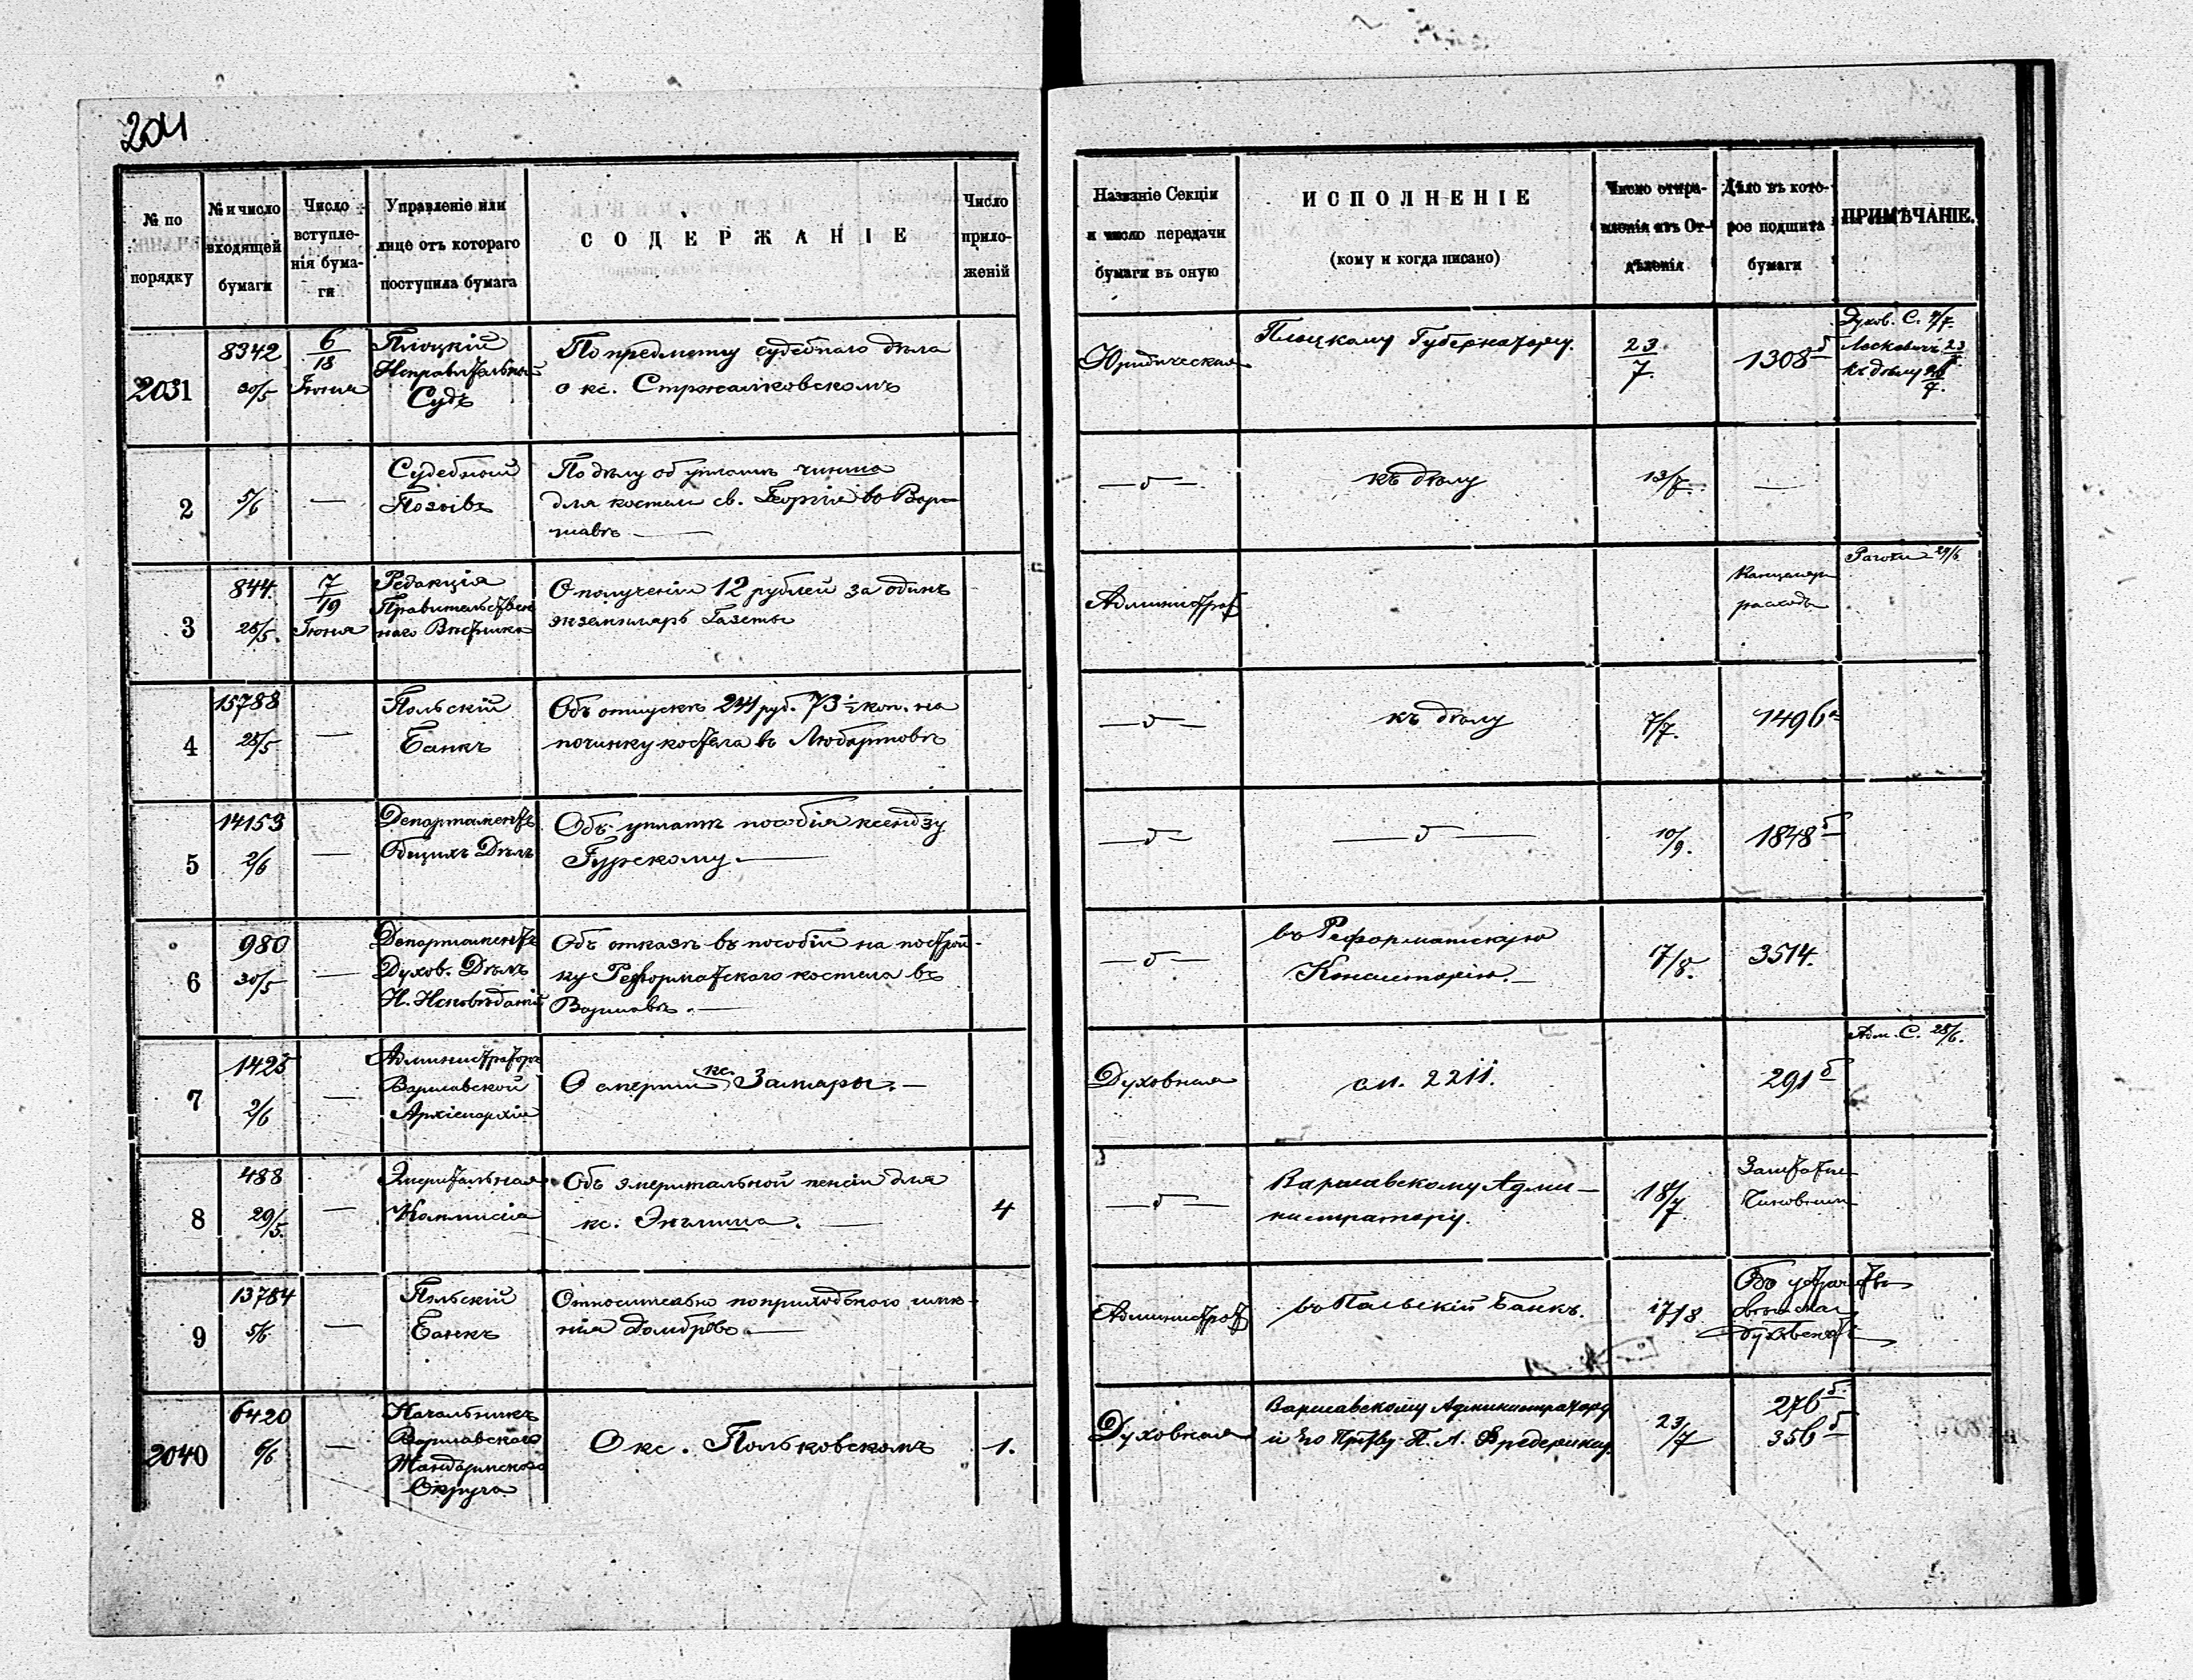 204
№ по порядку
№ и число входящей бумаги
Число вступленія бумаги
Управленіе или лице отъ котораго поступила бумага
СОДЕРЖАНІЕ
Число приложеній
Названіе Секціи и число передачи бумаги въ оную
ИСПОЛНЕНІЕ
(кому и когда писано)
Число отправленія изъ Отдѣленія
Дѣло въ которое подшита бумаги
ПРИМѢЧАНІЕ.
2031
8342
30/5
6/18 Іюня
Плоцкій
Исправительный
Судъ
По предмету судебнаго дѣла
о кс. Стржалковскомъ
Юридическая
Плоцкому Губернатору.
23/7.
1308 б
Духов. С.
къ дѣлу
2
5/6
—
Судебный
Позывъ
По дѣлу об уплатѣ чинша
для костела св. Георгія въ Вар-
шавѣ —
— " —
къ дѣлу
13/7.
—
3
844.
25/5.
7/19 Іюня
Редакція
Правительствен
наго Вѣстника
О полученіи 12 рублей за одинъ
экземпляръ Газеты
Администрат
Канцеляр
расходы
29/6
4
15788
25/5
—
Польскій
Банкъ
Объ отпускѣ 241 руб. 73 ½ коп. на
починку костела въ Любартовѣ
— " —
къ дѣлу
7/7.
1496 а
5
14153
2/6
—
Департаментъ
Общихъ Дѣлъ
Объ уплатѣ пособія ксендзу
Гурскому. —
— " —
— " —
10/9.
1848 б
6
980
30/5
—
Департаментъ
Духов. Дѣлъ
И. Исповѣданій
Объ отказѣ въ пособіи на построй-
ку Реформатскаго костела въ
Варшавѣ. —
— " —
въ Реформатскую
Консисторію. —
17/8.
3514.
7
1425
2/6
—
Администраторъ
Варшавской
Архіепархіи
О смерти кс. Затары. —
Духовная
см. 2211.
291 б
Адм. С. 28/6.
8
488
29/5.
—
Эмеритальная
Коммисія
Объ эмеритальной пенсіи для
кс. Энглиша. —
4
— " —
Варшавскому Адми-
нистратору.
18/7
Заштатные
Чиновники
9
13784
5/6
—
Польскій
Банкъ
Относительно поприходского имѣ-
нія Домброво. —
Администрат
въ Польскій Банкъ.
17/8
2040
6420
6/6
—
Начальникъ
Варшавскаго
Жандармскаго
Округа
О кс. Польковскомъ
1.
Духовная
Варшавскому Администратору
и Его Прству П. А. Фредериксу
23/7
276 б.
356 б